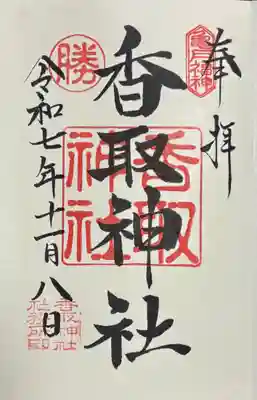 奉拝
亀戸福神
香取神社
香取神社
勝
令和七年十一月八日
香取神社
社務所印